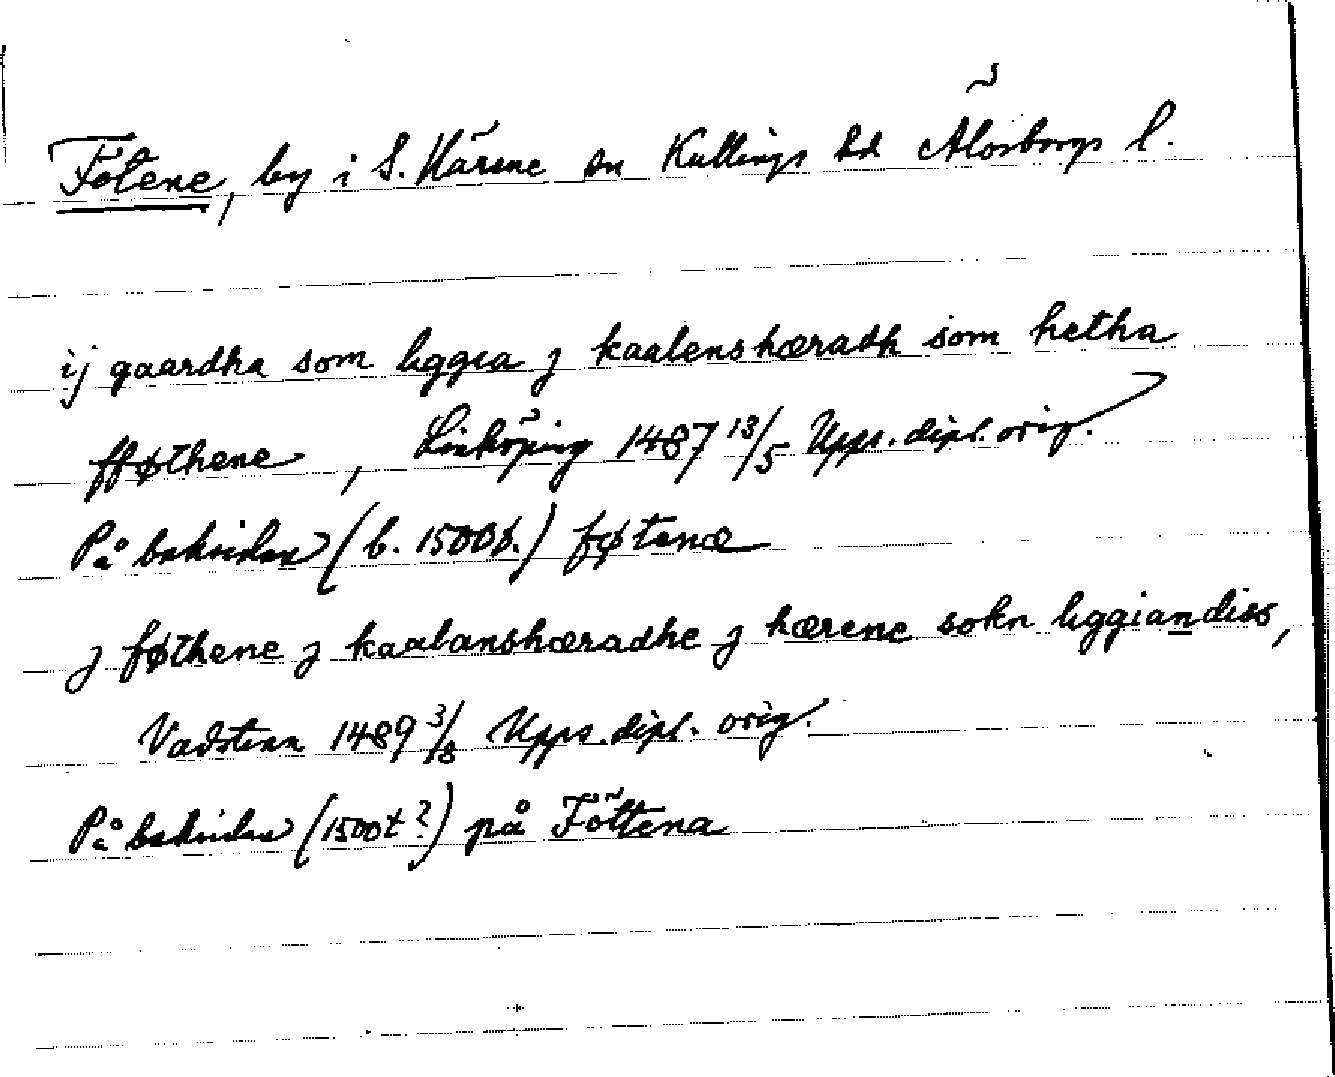 Fötene, by i S. Härene sn Kullings hd Älvsborgs l.
ij gaardha som liggia j kaalenshæradh som hetha
fføthene, Linköping 1487 13/5 Upps. dipl. orig.
På baksidan (b. 1500t.) føtenæ
j føthene j kaalanshæradhe j hærene sokn liggiandiss,
Vadstena 1489 3/8 Upps. dipl. orig.
På baksidan (1500t?) på Föttena